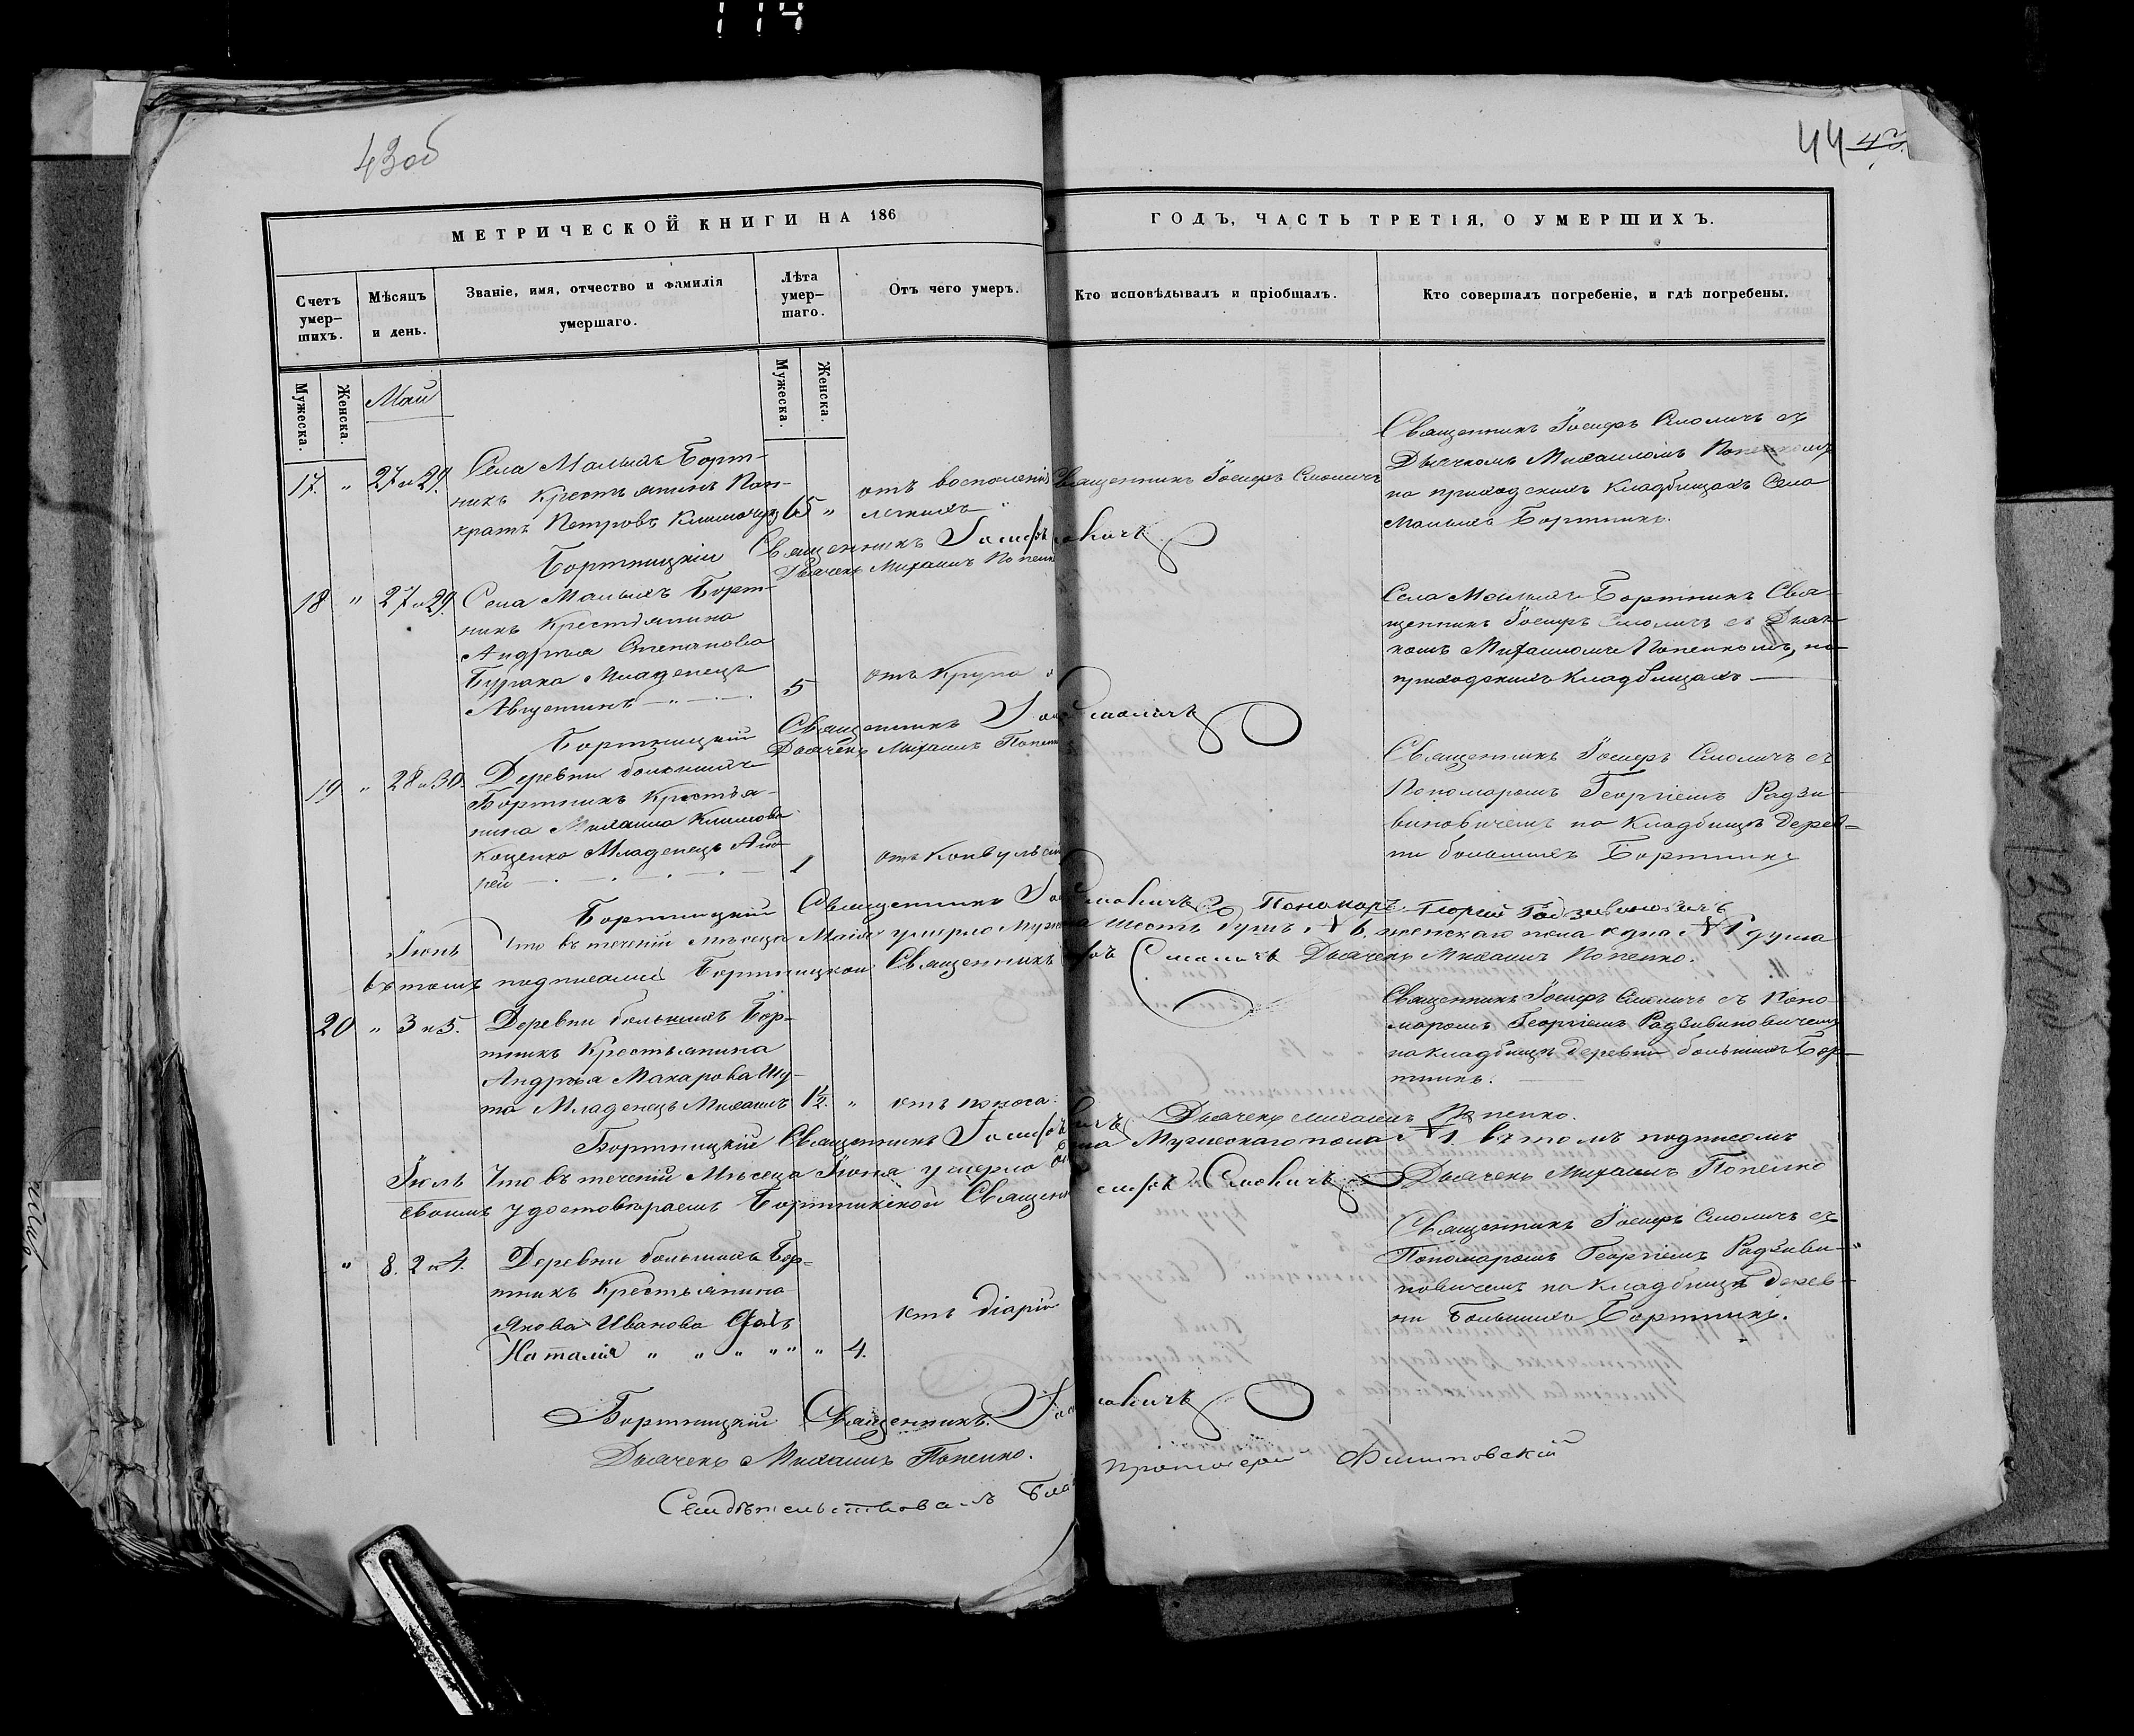 114
43об
44 43
МЕТРИЧЕСКОЙ КНИГИ НА 186
ГОДЪ, ЧАСТЬ ТРЕТІЯ, О УМЕРШИХЪ.
Счетъ умер-
шихъ.
Мѣсяцъ
и день.
Званіе, имя, отчество и фамилія
умершаго.
Лѣта
умер-
шаго.
Отъ чего умеръ.
Кто исповѣдывалъ и пріобщалъ.
Кто совершалъ погребеніе, и гдѣ погребены.
Мужеска.
Женска.
Май
Мужеска.
Женска.
17. " 27 и 29.
Села Малыхъ Борт-
никъ Крестьянинъ Пан-
кратъ Петровъ
65 "
отъ воспаленія
легкихъ
Священникъ Іосифъ Смоличъ
Священникъ Іосифъ Смоличъ съ
Дьячкомъ Михаиломъ Попейкомъ
на приходскихъ Кладбищахъ Села
Малыхъ Бортникъ.
Бортницкій Священникъ Іосифъ
Дьячекъ Михаилъ Попейко
18 " 27 и 29.
Села Малыхъ Борт-
никъ Крестьянина
Андрея Степанова
Бурака Младенецъ
Августинъ
5
отъ Крупа
Села Малыхъ Бортникъ Свя-
щенникъ Іосифъ Смоличъ съ Дьяч-
комъ Михаиломъ Попейкомъ, на
приходскихъ Кладбищахъ
Бортницкій Священникъ Смоличъ
Дьячекъ Михаилъ Попейко
19 " 28 и 30.
Деревни большихъ
Бортникъ Крестья-
нина Михаила Климова
Коценка Младенецъ Анд-
рей
1
отъ Конвульсій
Священникъ Іосифъ Смоличъ съ
Пономаромъ Георгіемъ Радзи-
виновичемъ на Кладбищѣ дерев-
ни большихъ Бортникъ
Бортницкій Священникъ Смоличъ Пономаръ Георгій Радзивиновичъ
Іюнь
Что въ теченіи мѣсеца Маія умерло Мужеска шесть душъ № 6. женскаго пола одна № 1 душа
въ томъ подписами Бортницкой Священникъ Смоличъ Дьячекъ Михаилъ Попейко.
20 " 3 и 5.
Деревни большихъ Бор-
тникъ Крестьянина
Андрѣя Макарова Шу-
та Младенецъ Михаилъ
1½. "
отъ поноса.
Священникъ Іосифъ Смоличъ съ Поно-
маромъ Георгіемъ Радзивиновичемъ
на кладбищѣ деревни большихъ Бор-
тникъ.
Бортницкій Священникъ Іосифъ Дьячекъ Михаилъ Попейко.
Іюль
Что въ теченіи Мѣсеца Іюня умерло Мужескаго пола № 1. въ томъ подписомъ
своимъ удостовѣряемъ Бортникской Священникъ Смоличъ Дьячекъ Михаилъ Попейко
" 8. 2 и 4.
Деревни большихъ Бор-
тникъ Крестьянина
Якова Иванова
Наталія " " " " "
" 4.
отъ діаріи
Священникъ Іосифъ Смоличъ съ
Пономаромъ Георгіемъ Радзиви-
новичемъ на кладбищѣ дерев-
ни Большихъ Бортникъ.
Бортницкій Священникъ
Дьячекъ Михаилъ Попейко.
Свидѣтельствовалъ
Протоіерей